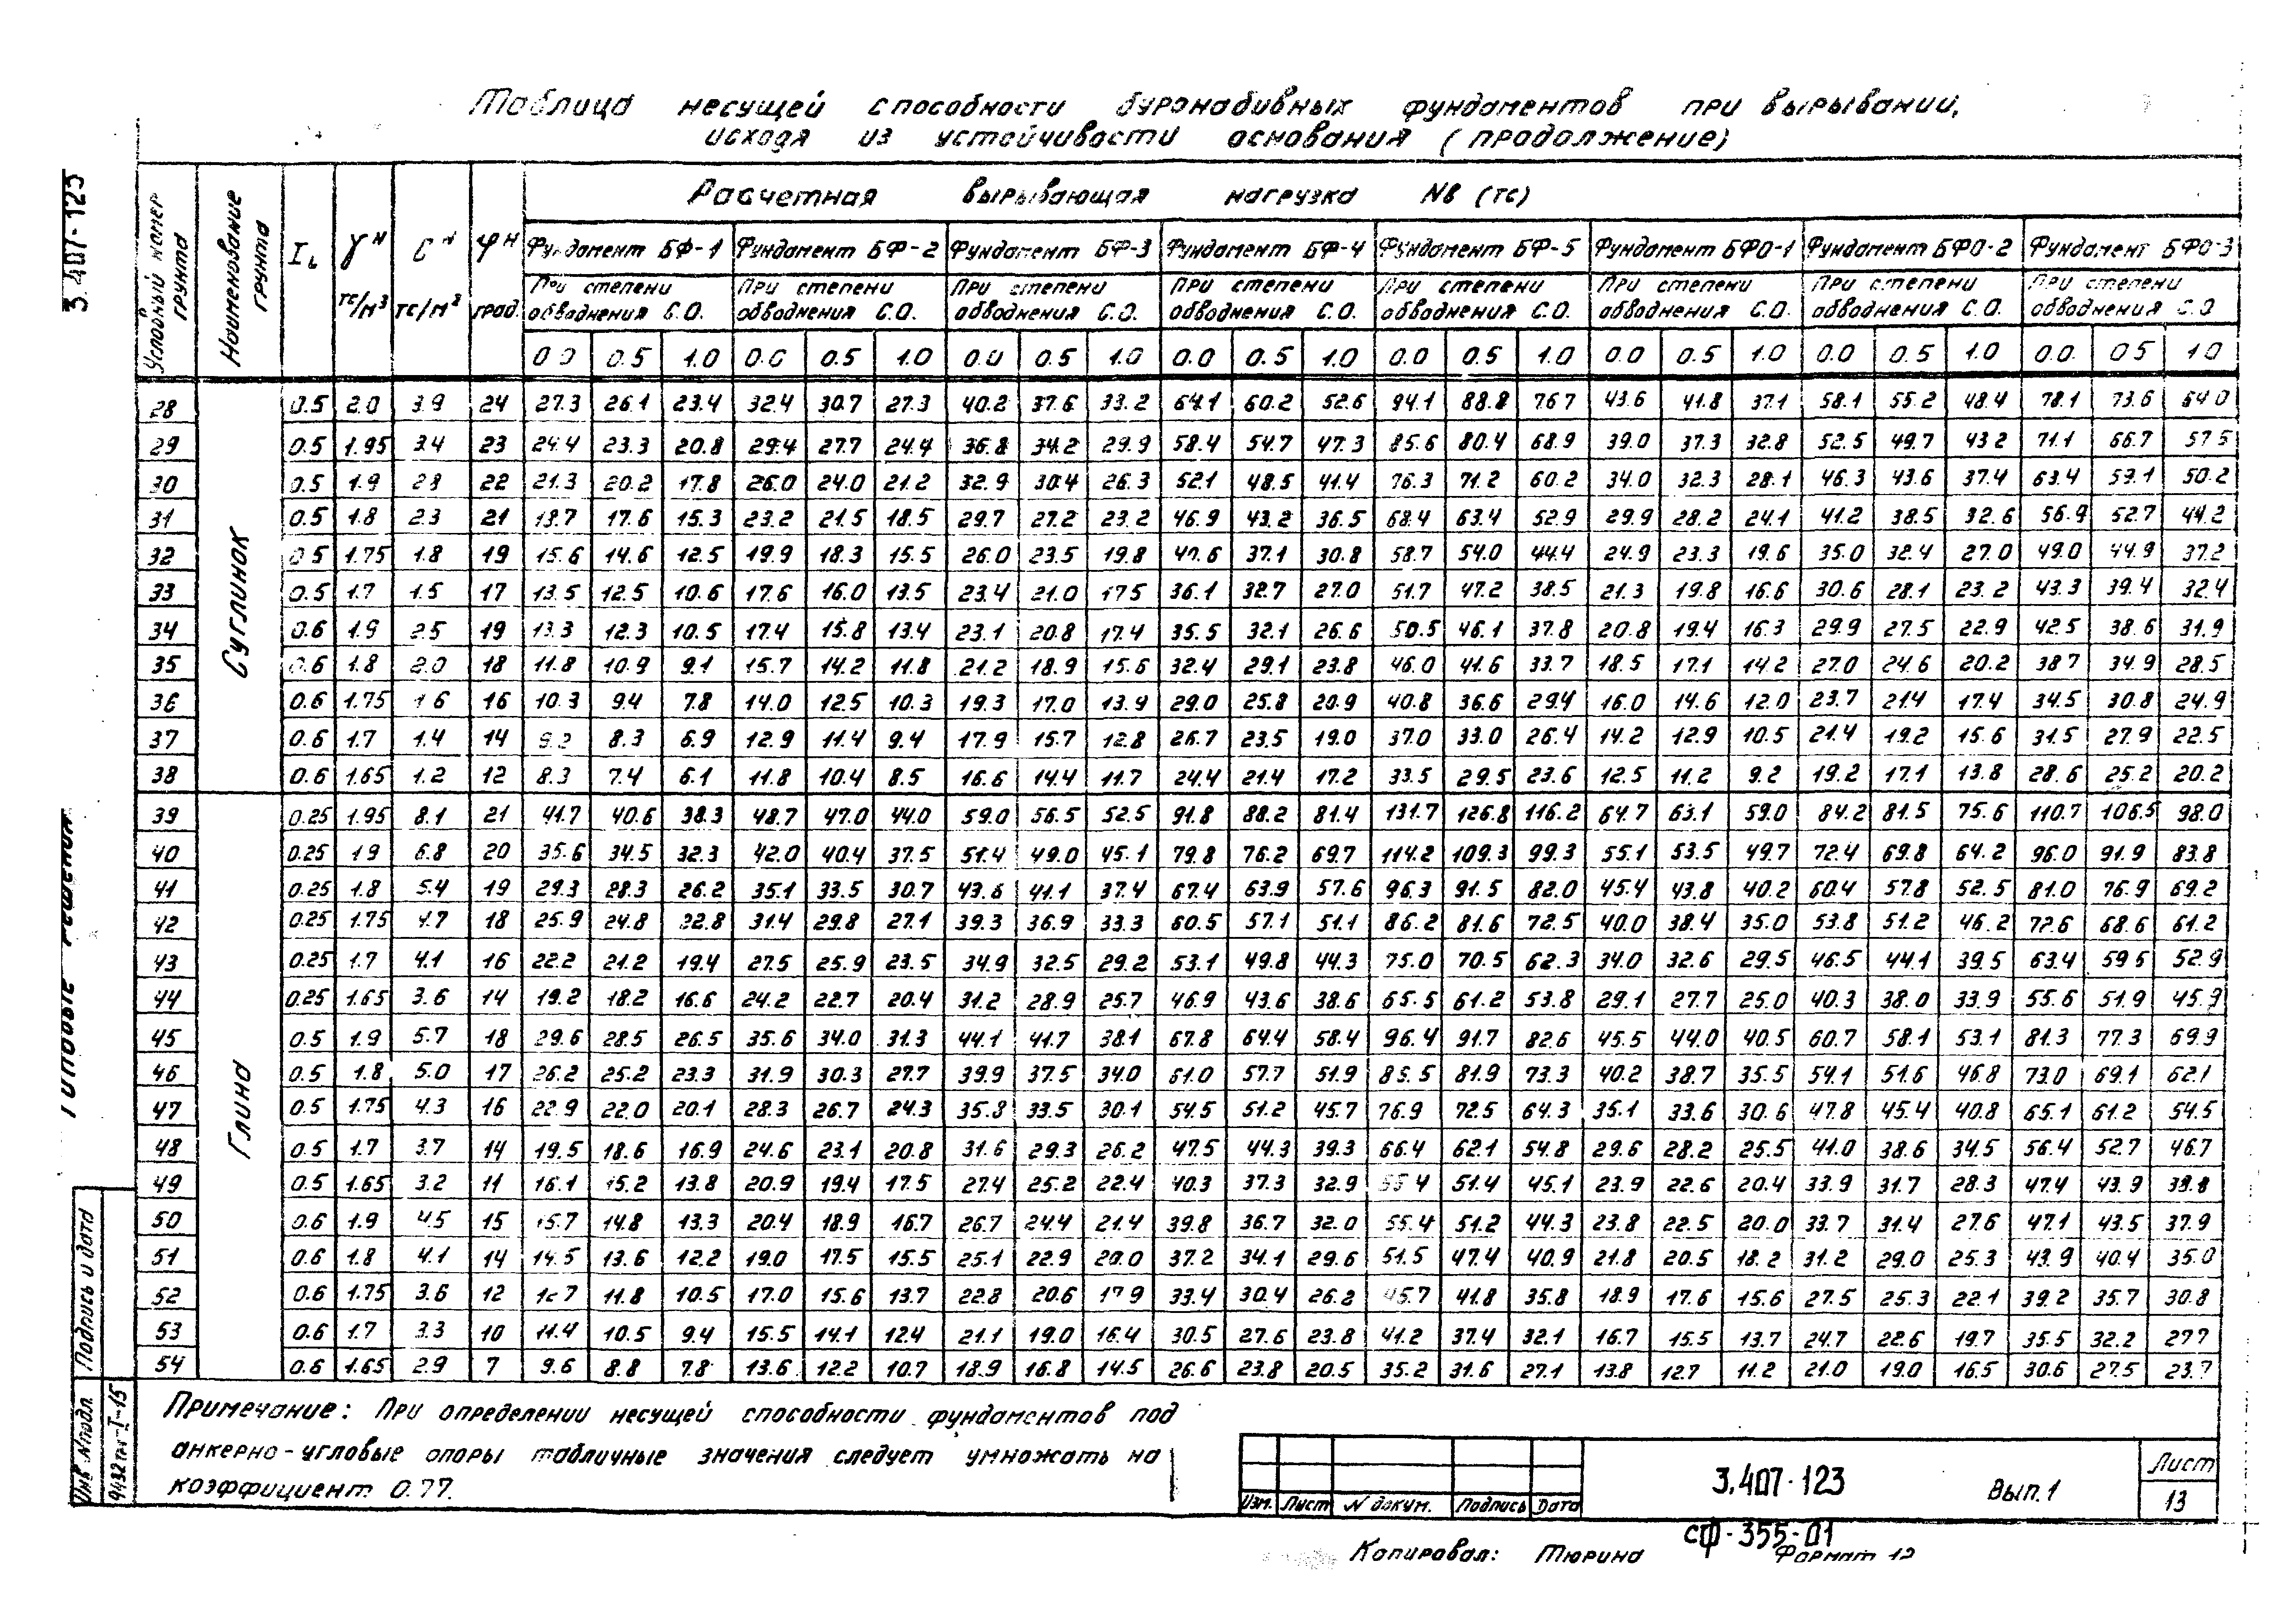 Таблица несущей способности буронабивных фундаментов при вырывании,
исходя из устойчивости основания (продолжение)
3.407-123
Условный номер грунта | Наименование грунта | IL | γн тс/м³ | Cн тс/м² | φн град. | Расчетная вырывающая нагрузка Nв (тс)
Фундамент БФ-1 | Фундамент БФ-2 | Фундамент БФ-3 | Фундамент БФ-4 | Фундамент БФ-5 | Фундамент БФО-1 | Фундамент БФО-2 | Фундамент БФО-3
При степени | При степени | При степени | При степени | При степени | При степени | При степени | При степени
обводнения С.О. | обводнения С.О. | обводнения С.О. | обводнения С.О. | обводнения С.О. | обводнения С.О. | обводнения С.О. | обводнения С.О
0.0 0.5 1.0 0.0 0.5 1.0 0.0 0.5 1.0 0.0 0.5 1.0 0.0 0.5 1.0 0.0 0.5 1.0 0.0 0.5 1.0 0.0. 0.5 1.0
Суглинок
28 0.5 2.0 3.9 24 27.3 26.1 23.4 32.4 30.7 27.3 40.2 37.6 33.2 64.1 60.2 52.6 94.1 88.8 76.7 43.6 41.8 37.1 58.1 55.2 48.4 78.1 73.6 64.0
29 0.5 1.95 3.4 23 24.4 23.3 20.8 29.4 27.7 24.4 36.8 34.2 29.9 58.4 54.7 47.3 85.6 80.4 68.9 39.0 37.3 32.8 52.5 49.7 43.2 71.1 66.7 57.5
30 0.5 1.9 2.8 22 21.3 20.2 17.8 26.0 24.0 21.2 32.9 30.4 26.3 52.1 48.5 41.4 76.3 71.2 60.2 34.0 32.3 28.1 46.3 43.6 37.4 63.4 59.1 50.2
31 0.5 1.8 2.3 21 18.7 17.6 15.3 23.2 21.5 18.5 29.7 27.2 23.2 46.9 43.2 36.5 68.4 63.4 52.9 29.9 28.2 24.1 41.2 38.5 32.6 56.9 52.7 44.2
32 0.5 1.75 1.8 19 15.6 14.6 12.5 19.9 18.3 15.5 26.0 23.5 19.8 40.6 37.1 30.8 58.7 54.0 44.4 24.9 23.3 19.6 35.0 32.4 27.0 49.0 44.9 37.2
33 0.5 1.7 1.5 17 13.5 12.5 10.6 17.6 16.0 13.5 23.4 21.0 17.5 36.1 32.7 27.0 51.7 47.2 38.5 21.3 19.8 16.6 30.6 28.1 23.2 43.3 39.4 32.4
34 0.6 1.9 2.5 19 13.3 12.3 10.5 17.4 15.8 13.4 23.1 20.8 17.4 35.5 32.1 26.6 50.5 46.1 37.8 20.8 19.4 16.3 29.9 27.5 22.9 42.5 38.6 31.9
35 0.6 1.8 2.0 18 11.8 10.9 9.1 15.7 14.2 11.8 21.2 18.9 15.6 32.4 29.1 23.8 46.0 41.6 33.7 18.5 17.1 14.2 27.0 24.6 20.2 38.7 34.9 28.5
36 0.6 1.75 1.6 16 10.3 9.4 7.8 14.0 12.5 10.3 19.3 17.0 13.9 29.0 25.8 20.9 40.8 36.6 29.4 16.0 14.6 12.0 23.7 21.4 17.4 34.5 30.8 24.9
37 0.6 1.7 1.4 14 9.2 8.3 6.9 12.9 11.4 9.4 17.9 15.7 12.8 26.7 23.5 19.0 37.0 33.0 26.4 14.2 12.9 10.5 21.4 19.2 15.6 31.5 27.9 22.5
38 0.6 1.65 1.2 12 8.3 7.4 6.1 11.8 10.4 8.5 16.6 14.4 11.7 24.4 21.4 17.2 33.5 29.5 23.6 12.5 11.2 9.2 19.2 17.1 13.8 28.6 25.2 20.2
Глина
39 0.25 1.95 8.1 21 41.7 40.6 38.3 48.7 47.0 44.0 59.0 56.5 52.5 91.8 88.2 81.4 131.7 126.8 116.2 64.7 63.1 59.0 84.2 81.5 75.6 110.7 106.5 98.0
40 0.25 1.9 6.8 20 35.6 34.5 32.3 42.0 40.4 37.5 51.4 49.0 45.1 79.8 76.2 69.7 114.2 109.3 99.3 55.1 53.5 49.7 72.4 69.8 64.2 96.0 91.9 83.8
41 0.25 1.8 5.4 19 29.3 28.3 26.2 35.1 33.5 30.7 43.6 41.1 37.4 67.4 63.9 57.6 96.3 91.5 82.0 45.4 43.8 40.2 60.4 57.8 52.5 81.0 76.9 69.2
42 0.25 1.75 4.7 18 25.9 24.8 22.8 31.4 29.8 27.1 39.3 36.9 33.3 60.5 57.1 51.1 86.2 81.6 72.5 40.0 38.4 35.0 53.8 51.2 46.2 72.6 68.6 61.2
43 0.25 1.7 4.1 16 22.2 21.2 19.4 27.5 25.9 23.5 34.9 32.5 29.2 53.1 49.8 44.3 75.0 70.5 62.3 34.0 32.6 29.5 46.5 44.1 39.5 63.4 59.5 52.9
44 0.25 1.65 3.6 14 19.2 18.2 16.6 24.2 22.7 20.4 31.2 28.9 25.7 46.9 43.6 38.6 65.5 61.2 53.8 29.1 27.7 25.0 40.3 38.0 33.9 55.6 51.9 45.9
45 0.5 1.9 5.7 18 29.6 28.5 26.5 35.6 34.0 31.3 44.1 41.7 38.1 67.8 64.4 58.4 96.4 91.7 82.6 45.5 44.0 40.5 60.7 58.1 53.1 81.3 77.3 69.9
46 0.5 1.8 5.0 17 26.2 25.2 23.3 31.9 30.3 27.7 39.9 37.5 34.0 61.0 57.7 51.9 86.5 81.9 73.3 40.2 38.7 35.5 54.1 51.6 46.8 73.0 69.1 62.1
47 0.5 1.75 4.3 16 22.9 22.0 20.1 28.3 26.7 24.3 35.8 33.5 30.1 54.5 51.2 45.7 76.9 72.5 64.3 35.1 33.6 30.6 47.8 45.4 40.8 65.1 61.2 54.5
48 0.5 1.7 3.7 14 19.5 18.6 16.9 24.6 23.1 20.8 31.6 29.3 26.2 47.5 44.3 39.3 66.4 62.1 54.8 29.6 28.2 25.5 41.0 38.6 34.5 56.4 52.7 46.7
49 0.5 1.65 3.2 11 16.1 15.2 13.8 20.9 19.4 17.5 27.4 25.2 22.4 40.3 37.3 32.9 55.4 51.4 45.1 23.9 22.6 20.4 33.9 31.7 28.3 47.4 43.9 38.8
50 0.6 1.9 4.5 15 15.7 14.8 13.3 20.4 18.9 16.7 26.7 24.4 21.4 39.8 36.7 32.0 55.4 51.2 44.3 23.8 22.5 20.0 33.7 31.4 27.6 47.1 43.5 37.9
51 0.6 1.8 4.1 14 14.5 13.6 12.2 19.0 17.5 15.5 25.1 22.9 20.0 37.2 34.1 29.6 51.5 47.4 40.9 21.8 20.5 18.2 31.2 29.0 25.3 43.9 40.4 35.0
52 0.6 1.75 3.6 12 12.7 11.8 10.5 17.0 15.6 13.7 22.8 20.6 17.9 33.4 30.4 26.2 45.7 41.8 35.8 18.9 17.6 15.6 27.5 25.3 22.1 39.2 35.7 30.8
53 0.6 1.7 3.3 10 11.4 10.5 9.4 15.5 14.1 12.4 21.1 19.0 16.4 30.5 27.6 23.8 41.2 37.4 32.1 16.7 15.5 13.7 24.7 22.6 19.7 35.5 32.2 27.7
54 0.6 1.65 2.9 7 9.6 8.8 7.8 13.6 12.2 10.7 18.9 16.8 14.5 26.6 23.8 20.5 35.2 31.6 27.1 13.8 12.7 11.2 21.0 19.0 16.5 30.6 27.5 23.7
Примечание: При определении несущей способности фундаментов под
анкерно-угловые опоры табличные значения следует умножать на
коэффициент 0.77.
Инв №подл. Подпись и дата
9432тм-I-15
Изм. Лист N докум. Подпись Дата
3.407-123 Вып.1
Лист
13
СФ-355-01
Копировал: Тюрина Формат 12